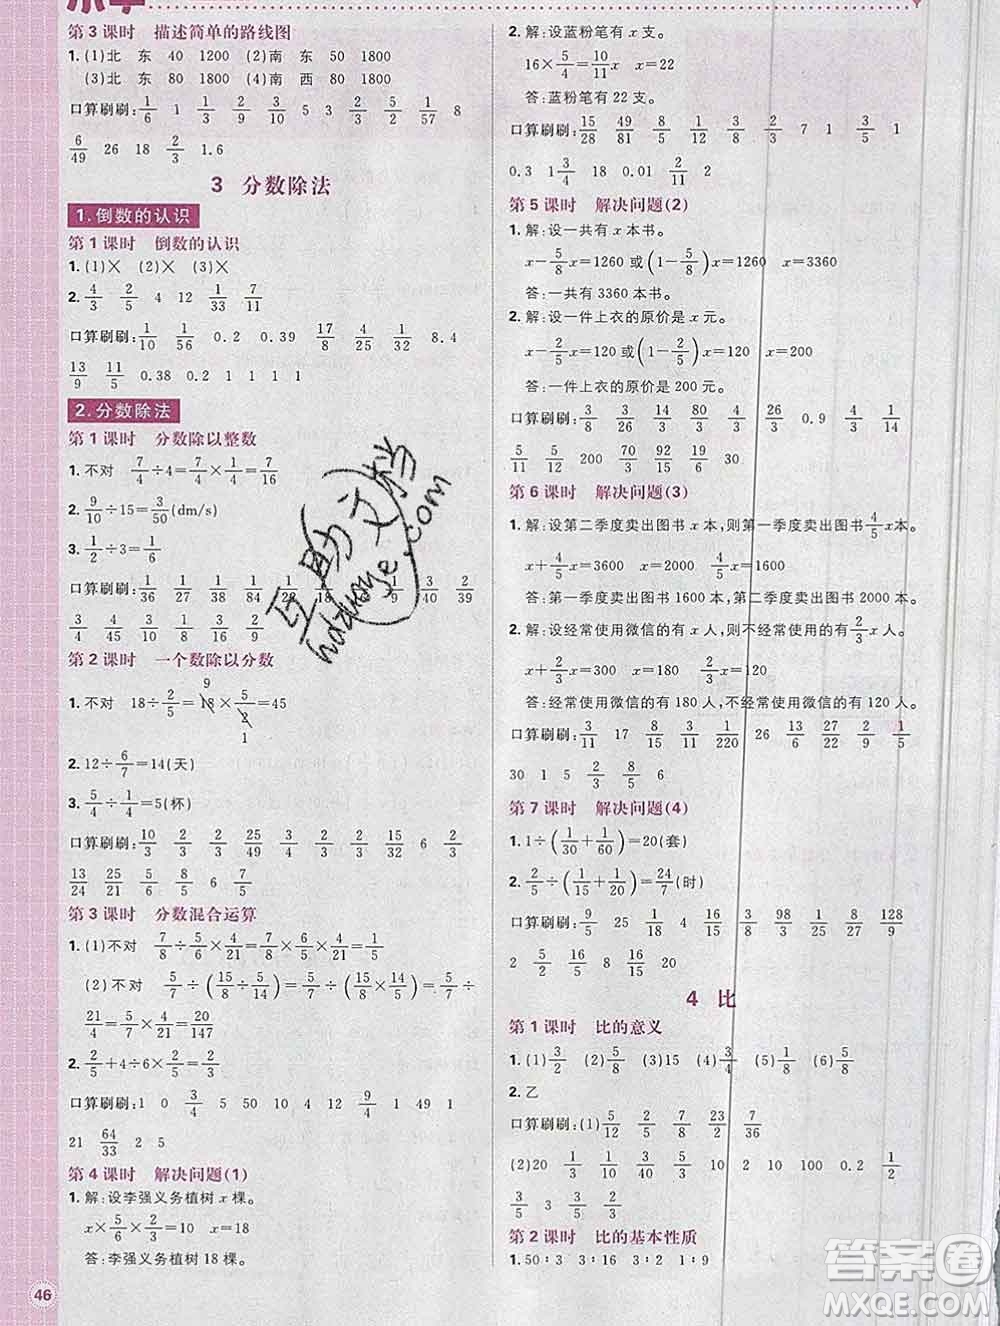 第3课时 描述简单的路线图
1.(1)北 东 40 1200 (2)南 东 50 1800
(3)北 东 80 1800 (4)南 西 80 1800
口算刷刷: 1/6 1 1/3 1/4 3/8 3/10 5 3 1/2 1/57 8
6/49 26 18 2/3 1.6
3 分数除法
1.倒数的认识
第1课时 倒数的认识
1.(1)× (2)× (3)×
2. 4/3 2/5 4 12 1/33 7/11
口算刷刷: 1/10 1/56 0.2 0.39 17/8 4/15
13/9 11/5 0.38 0.2 1 1 1 1
2.分数除法
第1课时 分数除以整数
1.不对 7/4÷4=7/4×1/4=7/16
2. 9/10÷15=3/50(dm/s)
3. 1/2÷3=1/6
口算刷刷:
第2课时 一个数除以分数
1.不对 18÷2/5=18×5/2=45
9
1
2.12÷6/7=14(天)
3. 5/4÷1/4=5(杯)
口算刷刷: 10/3 2/3 2/3 25/49 3/4 2/3 2/3 6 2/5
13/24 15/2 5/6 8/5 6 7/5
第3课时 分数混合运算
1.(1)不对 7/8÷5/6×4/21=7/8×6/5×4/21=1/5
(2)不对 5/7÷(15/8÷5/14)=5/7÷(15/8×14/5)=5/7÷
21/4=5/7×4/21=20/147
2. 2/5+4÷6×2/5=2/3
口算刷刷: 1 0 3/4 5 50 10 1 49 1
21 64/33 2 5
第4课时 解决问题(1)
1.解:设李强义务植树x棵。
x×5/6×2/3=10 x=18
答:李强义务植树18棵。
46
2.解:设蓝粉笔有x支。
16×5/4=10/11x x=22
答:蓝粉笔有22支。
口算刷刷: 15/28 49/81 8/5 1/12 3/8 2/3 7 1 3/5 1
0.3 1/4 18 0.01 2/11
第5课时 解决问题(2)
1.解:设一共有x本书。
x-5/8x=1260或(1-5/8)x=1260 x=3360
答:一共有3360本书。
2.解:设一件上衣的原价是x元。
x-2/5x=120或(1-2/5)x=120 x=200
答:一件上衣的原价是200元。
口算刷刷: 3/8 3/4 14/3 80/3 4/3 26/3 0.9 4/3 4/9
5/11 5/12 200 70/3 92/15 19/6 30
第6课时 解决问题(3)
1.解:设第二季度卖出图书x本,则第一季度卖出图书4/5x本。
x+4/5x=3600 x=2000 4/5x=1600
答:第一季度卖出图书1600本,第二季度卖出图书2000本。
2.解:设经常使用微信的有x人,则不经常使用微信的有2/3x人。
x+2/3x=300 x=180 2/3x=120
答:经常使用微信的有180人,不经常使用微信的有120人。
口算刷刷: 3/11 17 3/14 3/11 1/220 26 13/6 27/2 2/9 1/5
30 1 5 2/3 5/8 6
第7课时 解决问题(4)
1.1÷(1/30+1/60)=20(套)
2. 2/5÷(1/15+1/20)=24/7(时)
口算刷刷: 9/5 25 1/8 4 16/5 3 98/3 1/2 8 128/9
2 5/2 16/5 8 16/3
4 比
第1课时 比的意义
1.(1)3/2 (2)8/5 (3)15 (4)3/4 (5)1/8 (6)5/8
2.乙
口算刷刷:(1)5/12 5/6 7/8 23/2 7/36
(2)20 1/6 2/3 3/4 10 100 0.2 1/2
3/5 3 3/5
第2课时 比的基本性质
1.50∶3 3∶16 3∶2 1∶9
互助文档
hdzuoye.com
答案圈
MXQE.COM